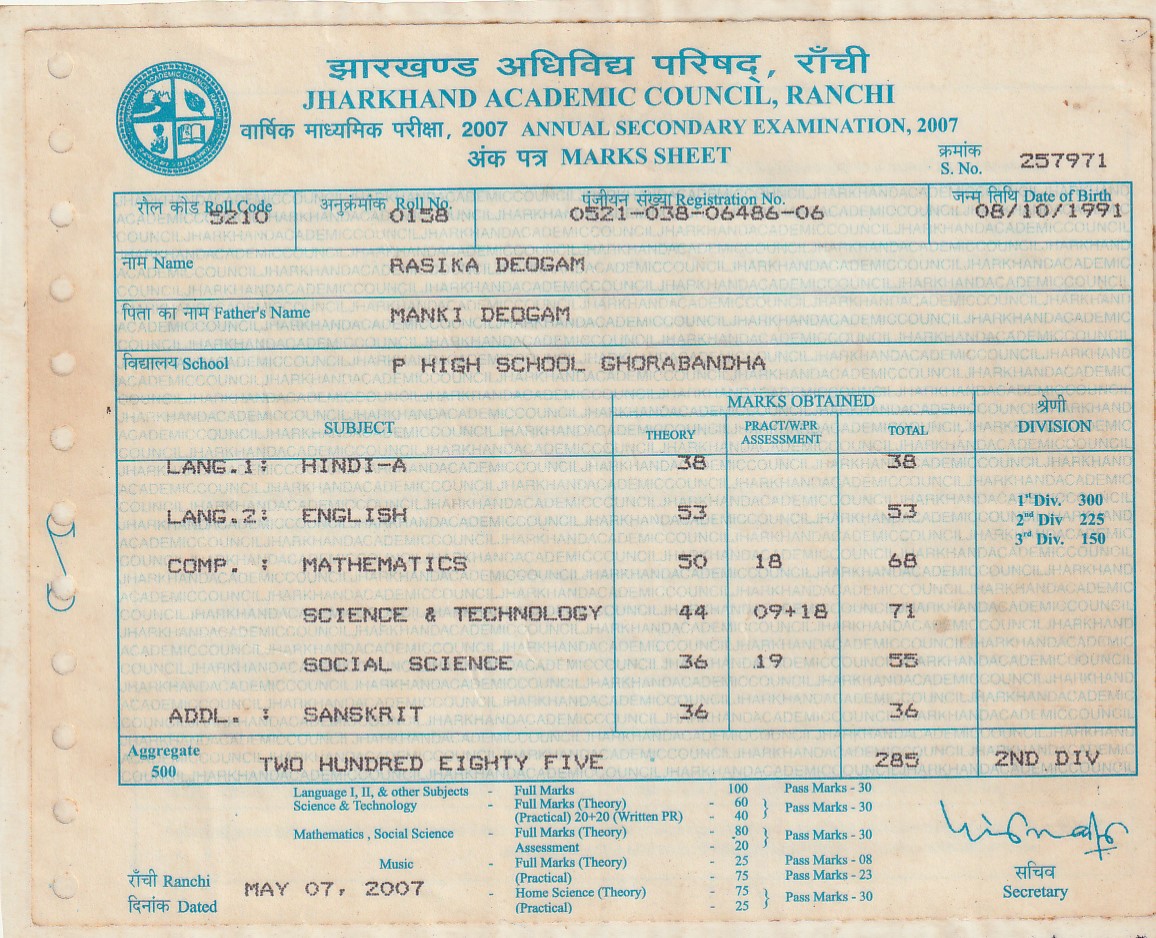 झारखण्ड अधिविद्य परिषद्, राँची
JHARKHAND ACADEMIC COUNCIL, RANCHI
वार्षिक माध्यमिक परीक्षा, 2007 ANNUAL SECONDARY EXAMINATION, 2007
अंक पत्र MARKS SHEET
क्रमांक
S. No. 257971
रौल कोड Roll Code अनुक्रमांक Roll No. पंजीयन संख्या Registration No. जन्म तिथि Date of Birth
5210 0158 0521-038-06486-06 08/10/1991
नाम Name RASIKA DEOGAM
पिता का नाम Father's Name MANKI DEOGAM
विद्यालय School P HIGH SCHOOL GHORABANDHA
SUBJECT MARKS OBTAINED श्रेणी
THEORY PRACT/W.PR ASSESSMENT TOTAL DIVISION
LANG.1: HINDI-A 38 38
LANG.2: ENGLISH 53 53
1st Div. 300
2nd Div 225
3rd Div. 150
COMP. : MATHEMATICS 50 18 68
SCIENCE & TECHNOLOGY 44 09+18 71
SOCIAL SCIENCE 36 19 55
ADDL. : SANSKRIT 36 36
Aggregate
500 TWO HUNDRED EIGHTY FIVE 285 2ND DIV
Language I, II, & other Subjects - Full Marks 100 Pass Marks - 30
Science & Technology - Full Marks (Theory) - 60 } Pass Marks - 30
(Practical) 20+20 (Written PR) - 40
Mathematics , Social Science - Full Marks (Theory) - 80 } Pass Marks - 30
Assessment - 20
Music - Full Marks (Theory) - 25 Pass Marks - 08
(Practical) - 75 Pass Marks - 23
- Home Science (Theory) - 75 } Pass Marks - 30
(Practical) - 25
राँची Ranchi
दिनांक Dated MAY 07, 2007
सचिव
Secretary